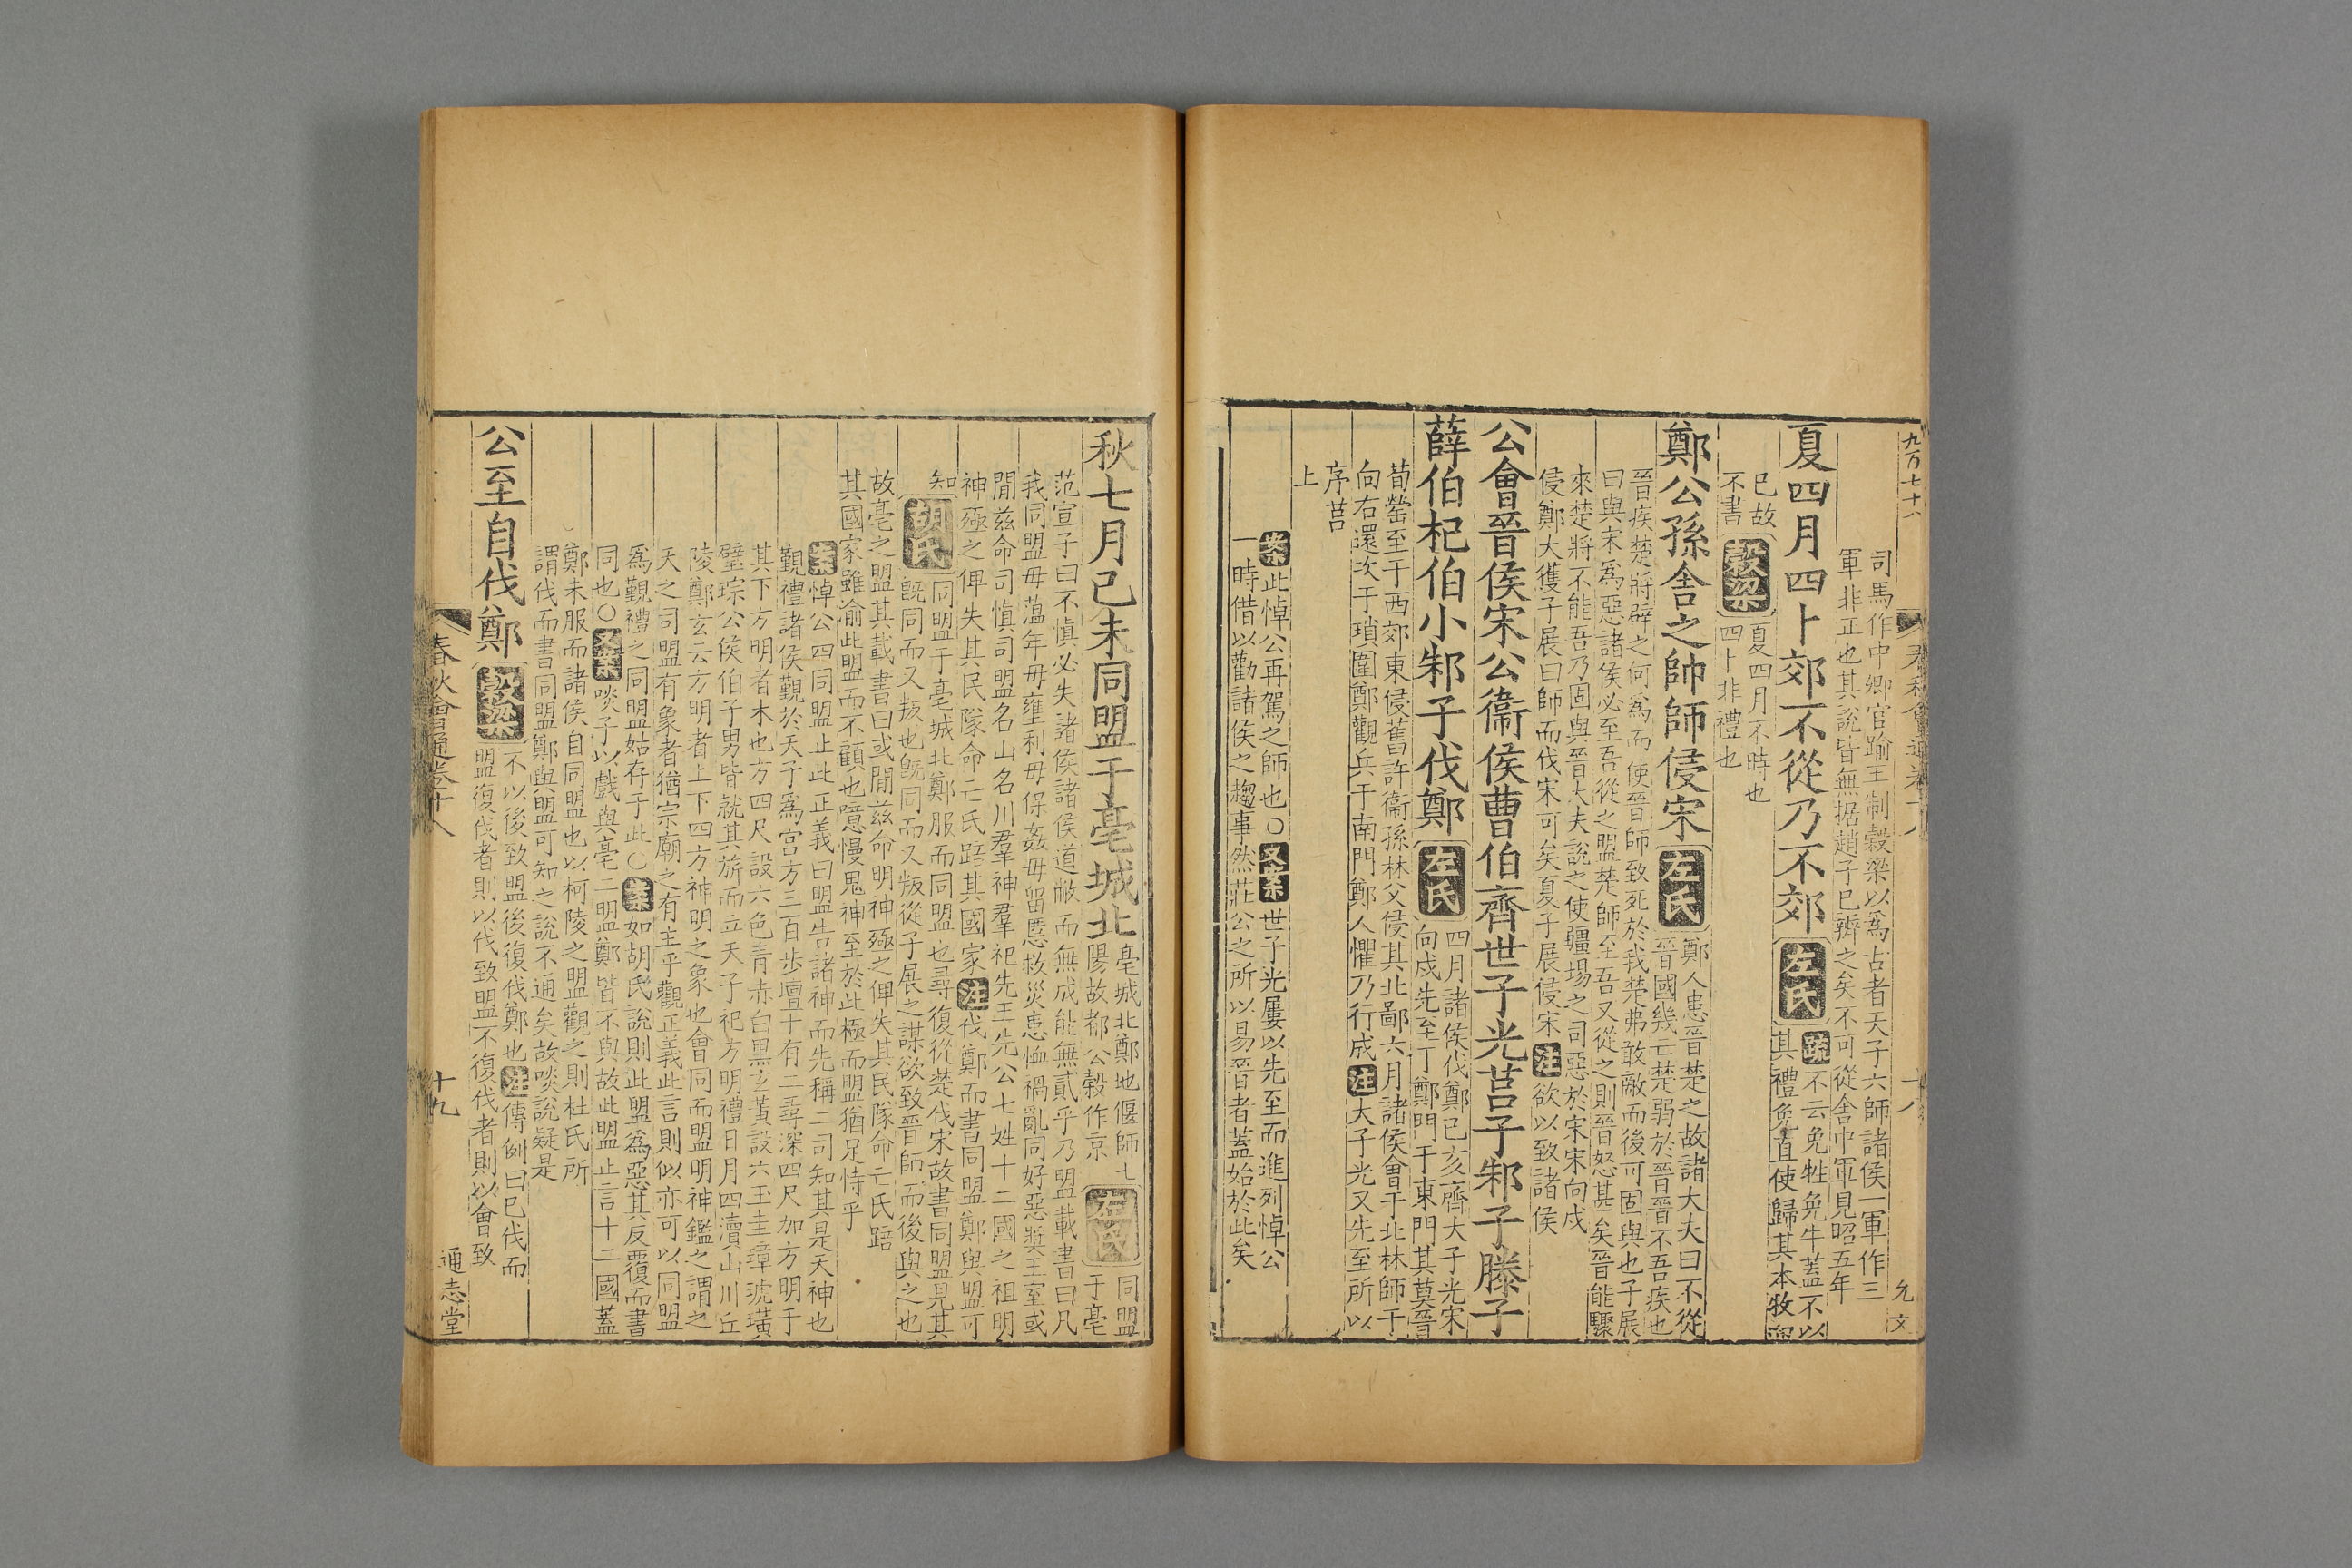 九万七十六
司馬作中卿官踰王制穀梁以爲古者天子六師諸侯一軍作三
軍非正也其說皆無据趙子巳辨之矣不可從舍中軍見昭五年
夏四月四卜郊不從乃不郊 左氏 疏 不云免牲免牛蓋不以
其禮免直使歸其本牧
巳故
不書 穀梁 夏四月不時也
四卜非禮也
鄭公孫舍之帥師侵宋 左氏 鄭人患晉楚之故諸大夫曰不從
晉國幾亡楚弱於晉晉不吾疾也
晉疾楚將辟之何爲而使晉師致死於我楚弗敢敵而後可固與也子展
曰與宋爲惡諸侯必至吾從之盟楚師至吾又從之則晉怒甚矣晉能驟
來楚將不能吾乃固與晉大夫說之使疆場之司惡於宋宋向戌
侵鄭大獲子展曰師而伐宋可矣夏子展侵宋 注 欲以致諸侯
公會晉侯宋公衞侯曹伯齊世子光莒子邾子滕子
薛伯杞伯小邾子伐鄭 左氏 四月諸侯伐鄭己亥齊大子光宋
向戌先至丁鄭門于東門其莫晉
荀罃至于西郊東侵舊許衞孫林父侵其北鄙六月諸侯會于北林師于
向右還次于瑣圍鄭觀兵于南門鄭人懼乃行成 注 大子光又先至所以
序莒
上
案 此悼公再駕之師也○ 又案 世子光屢以先至而進列悼公
一時借以勸諸侯之趨事然莊公之所以易晉者蓋始於此矣
秋七月己未同盟于亳城北 亳城北鄭地偃師七
陽故都公穀作京 左氏 同盟
于亳
范宣子曰不愼必失諸侯諸侯道敝而無成能無貳乎乃盟載書曰凡
我同盟毋薀年毋壅利毋保姦毋留慝救災患恤禍亂同好惡奬王室或
閒兹命司愼司盟名山名川羣神羣祀先王先公七姓十二國之祖明
神殛之俾失其民隊命亡氏踣其國家 注 伐鄭而書同盟鄭與盟可
知 胡氏 同盟于亳城北鄭服而同盟也尋復從楚伐宋故書同盟見其
旣同而又叛也旣同而又叛從子展之謀欲致晉師而後與之也
故亳之盟其載書曰或閒兹命明神殛之俾失其民隊命亡氏踣
其國家雖渝此盟而不顧也噫慢鬼神至於此極而盟猶足恃乎
案 悼公四同盟止此正義曰盟告諸神而先稱二司知其是天神也
覲禮諸侯覲於天子爲宮方三百步壇十有二尋深四尺加方明于
其下方明者木也方四尺設六色青赤白黑玄黃設六玉圭璋琥璜
璧琮公侯伯子男皆就其旂而立天子祀方明禮日月四瀆山川丘
陵鄭玄云方明者上下四方神明之象也會同而盟明神鑑之謂之
天之司盟有象者猶宗廟之有主乎觀正義此言則似亦可以同盟
爲覲禮之同盟姑存于此○ 案 如胡氏說則此盟爲惡其反覆而書
同也○ 又案 啖子以戲與亳二盟鄭皆不與故此盟止言十二國蓋
鄭未服而諸侯自同盟也以柯陵之盟觀之則杜氏所
謂伐而書同盟鄭與盟可知之說不通矣故啖說疑是
公至自伐鄭 穀梁 不以後致盟後復伐鄭也 注 傳例曰巳伐而
盟復伐者則以伐致盟不復伐者則以會致
春秋會通卷十八
十九
通志堂